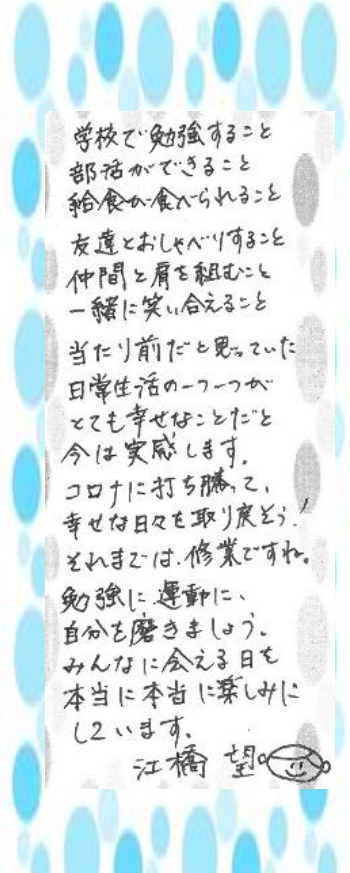 学校で勉強すること
部活ができること
給食が食べられること
友達とおしゃべりすること
仲間と肩を組むこと
一緒に笑い合えること
当たり前だと思っていた
日常生活の一つ一つが
とても幸せなことだと
今は実感します。
コロナに打ち勝って、
幸せな日々を取り戻そう!
それまでは、修業ですね。
勉強に、運動に、
自分を磨きましょう。
みんなに会える日を
本当に本当に楽しみに
しています。
江橋 望